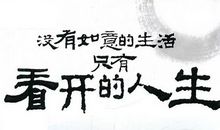 没有如意的生活
只有
看开的人生